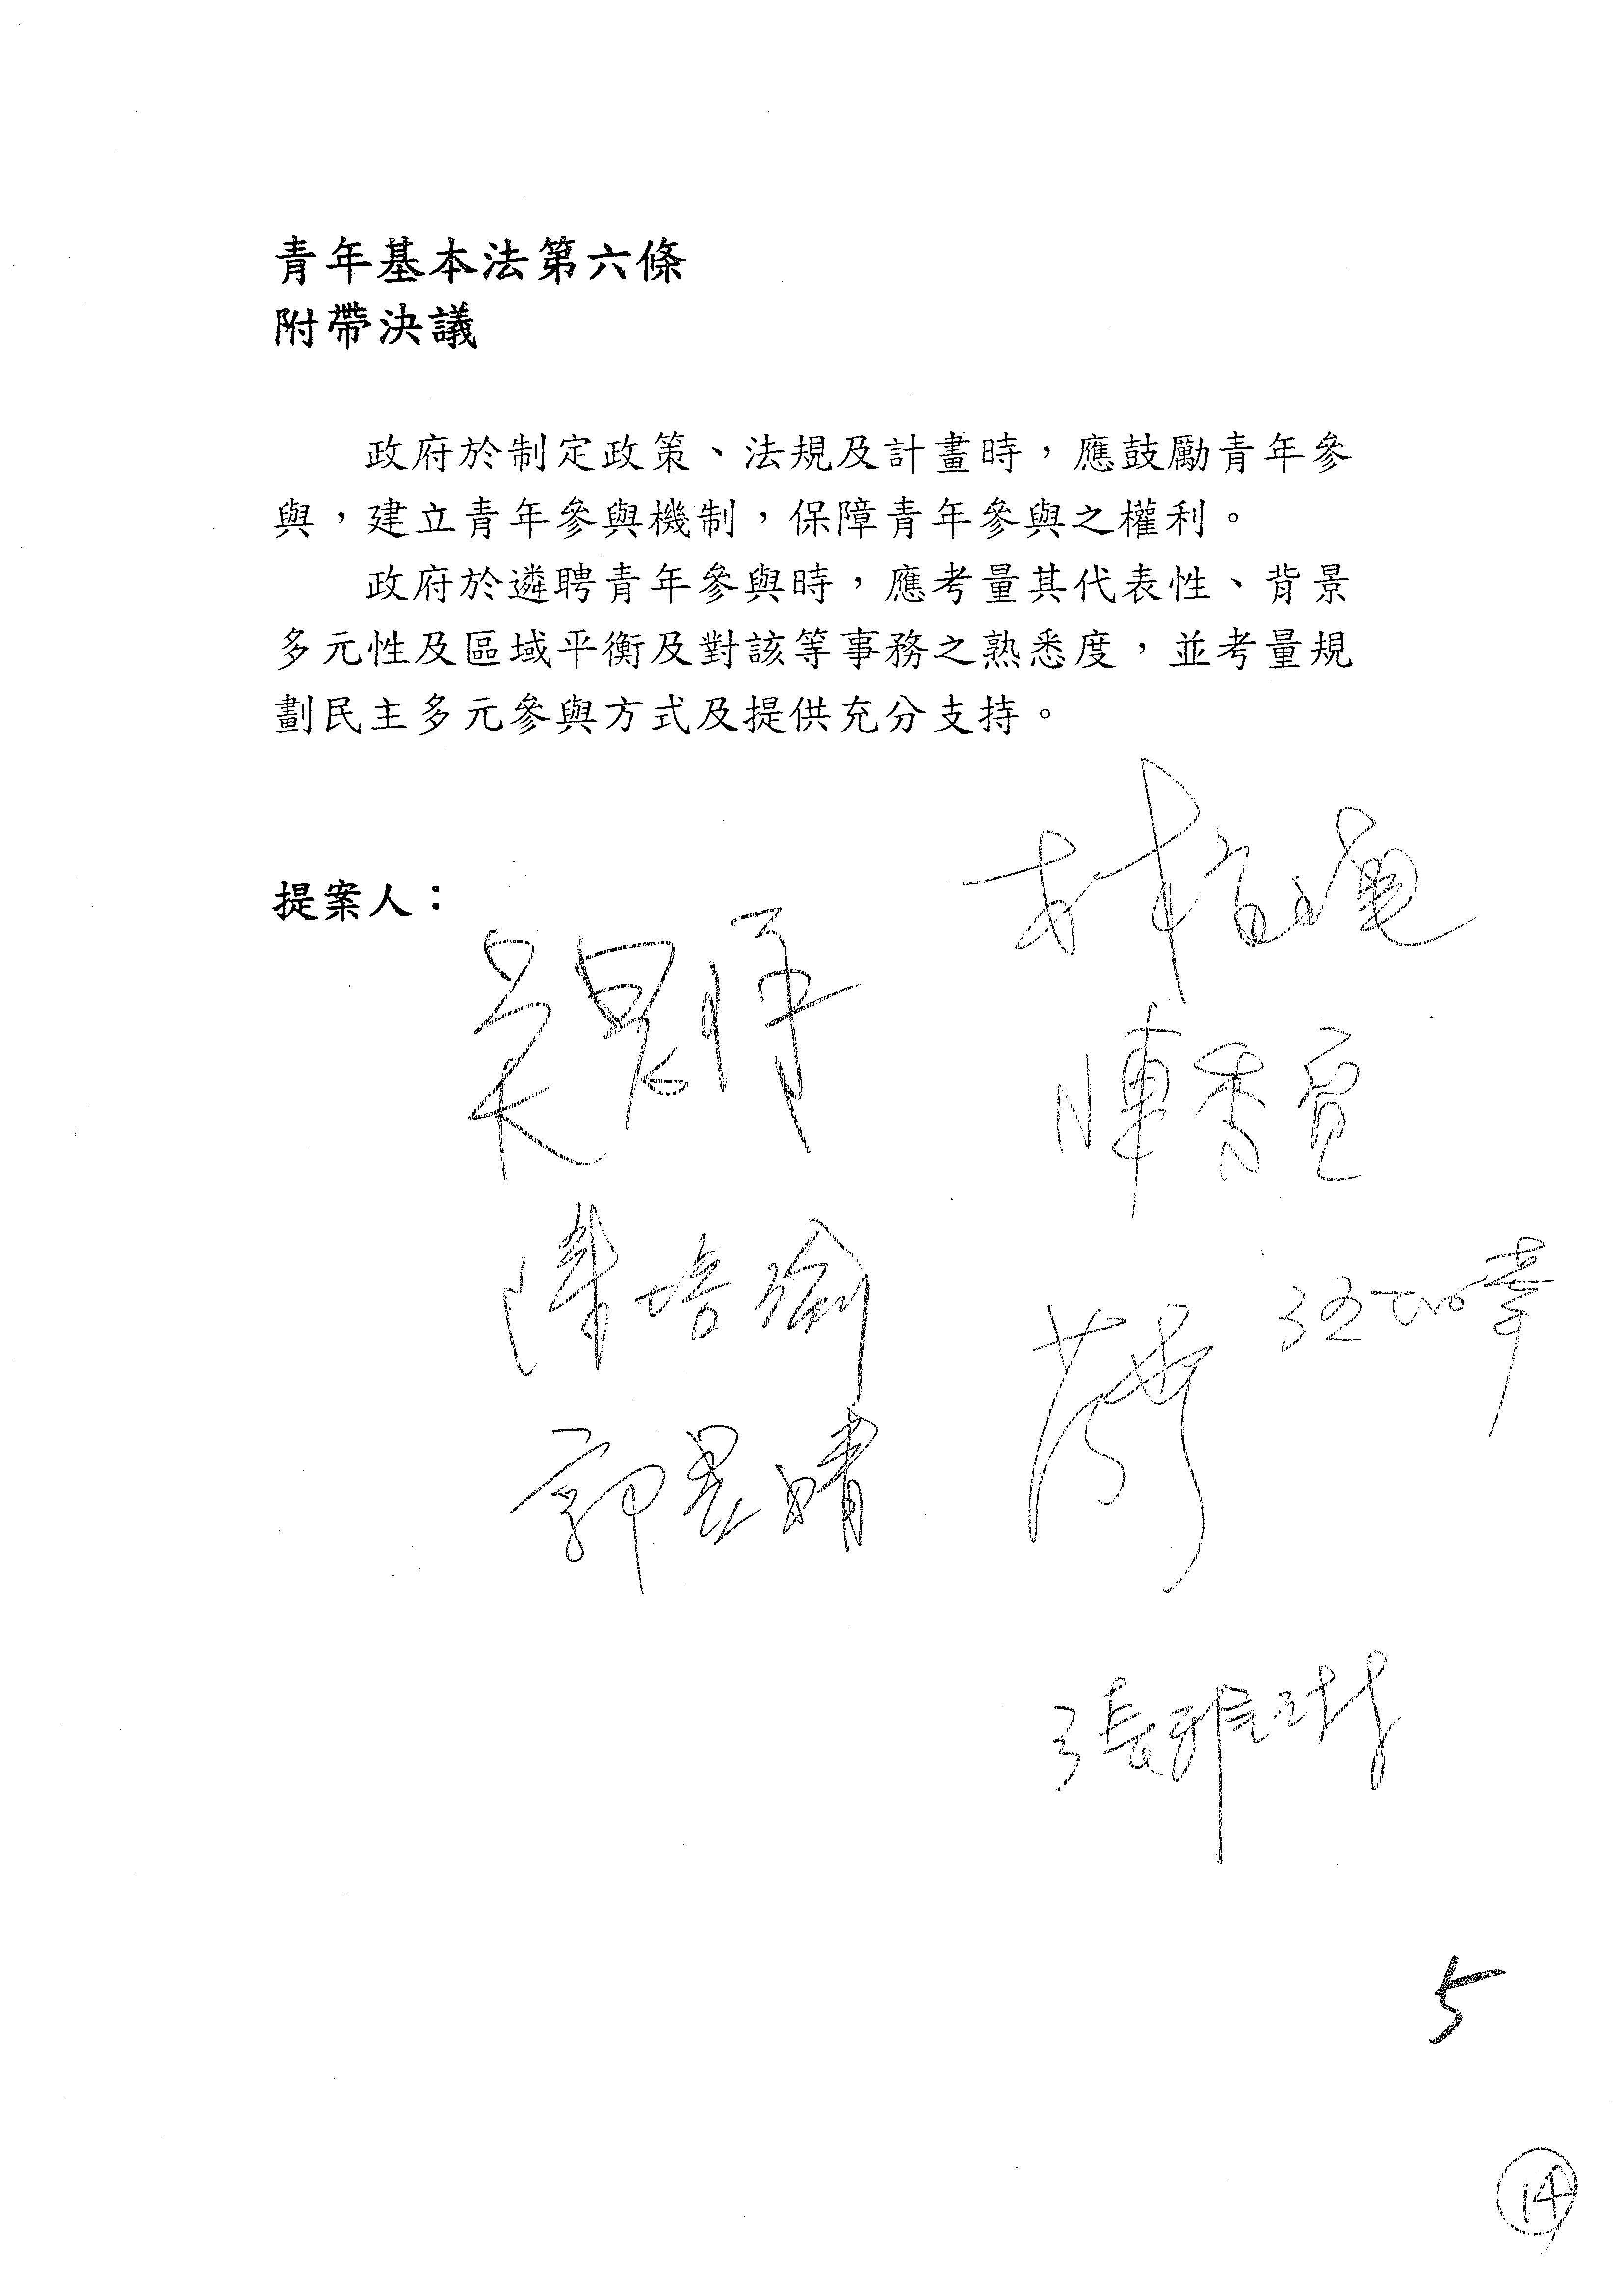 青年基本法第六條
附帶決議
政府於制定政策、法規及計畫時，應鼓勵青年參
與，建立青年參與機制，保障青年參與之權利。
政府於遴聘青年參與時，應考量其代表性、背景
多元性及區域平衡及對該等事務之熟悉度，並考量規
劃民主多元參與方式及提供充分支持。
提案人：
吳思瑤
陳培瑜
陳秀寳
郭昱晴
張雅琳
5
14